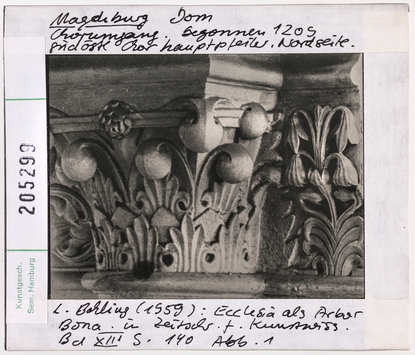 Magdeburg Dom
Chorumgang. Begonnen 1209
südöstl. Chorhauptpfeiler. Nordseite.
205299
Kunstgesch.
Sem. Hamburg
L. Behling (1959): Ecclesia als Arbor
Bona. in Zeitschr. f. Kunstwiss.
Bd XIII S. 140 Abb. 1